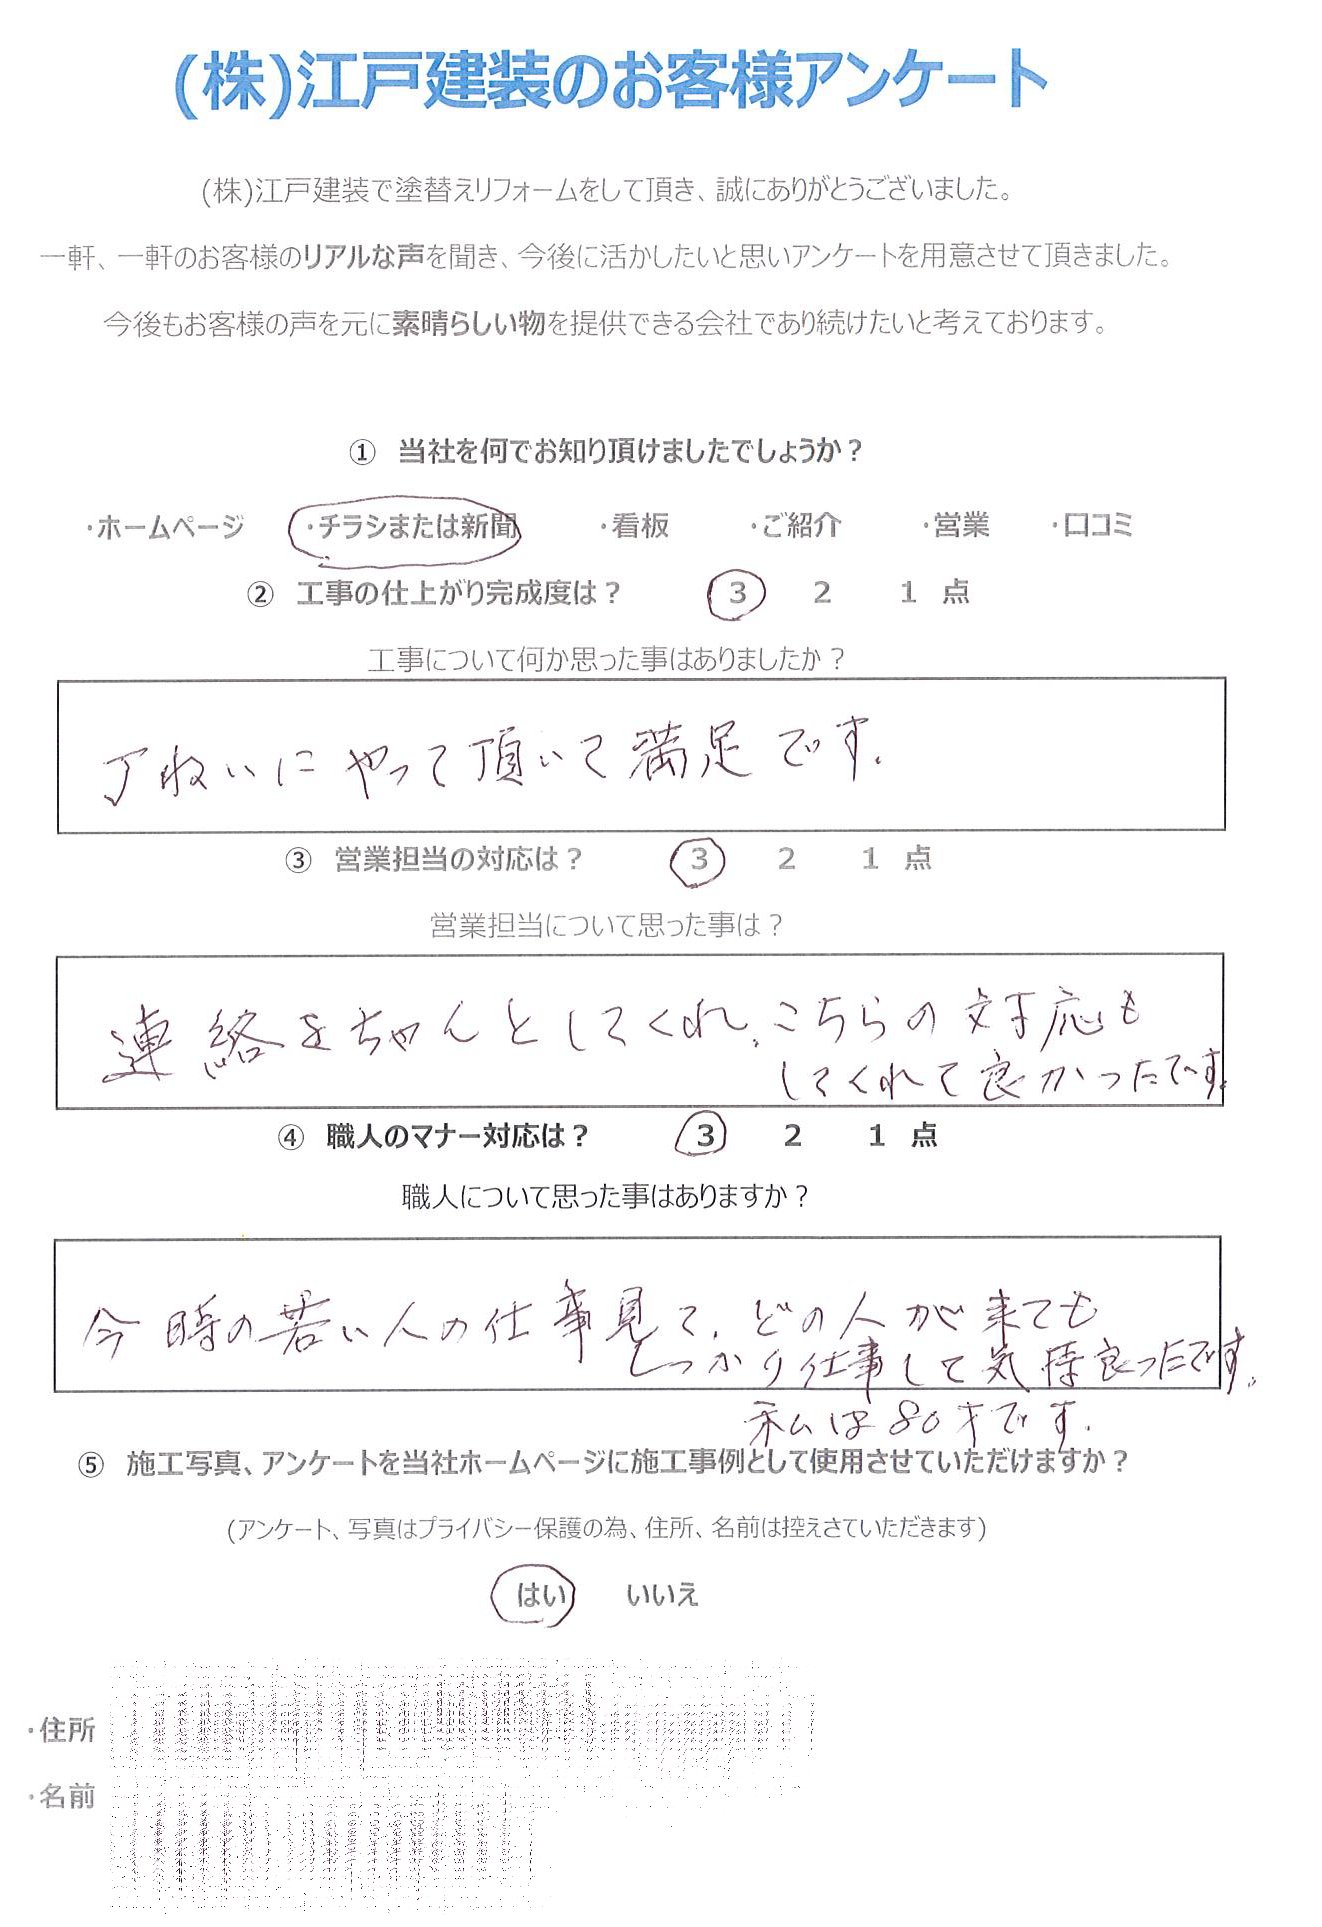 (株)江戸建装のお客様アンケート
(株)江戸建装で塗替えリフォームをして頂き、誠にありがとうございました。
一軒、一軒のお客様のリアルな声を聞き、今後に活かしたいと思いアンケートを用意させて頂きました。
今後もお客様の声を元に素晴らしい物を提供できる会社であり続けたいと考えております。
① 当社を何でお知り頂けましたでしょうか？
・ホームページ ・チラシまたは新聞 ・看板 ・ご紹介 ・営業 ・口コミ
② 工事の仕上がり完成度は？ 3 2 1 点
工事について何か思った事はありましたか？
丁ねいにやって頂いて満足です.
③ 営業担当の対応は？ 3 2 1 点
営業担当について思った事は？
連絡をちゃんとしてくれ、こちらの対応も
してくれて良かったです.
④ 職人のマナー対応は？ 3 2 1 点
職人について思った事はありますか？
今時の若い人の仕事見て、どの人が来ても
しっかり仕事して気持良ったです.
私は80才です.
⑤ 施工写真、アンケートを当社ホームページに施工事例として使用させていただけますか？
(アンケート、写真はプライバシー保護の為、住所、名前は控えさていただきます)
はい いいえ
・住所
・名前